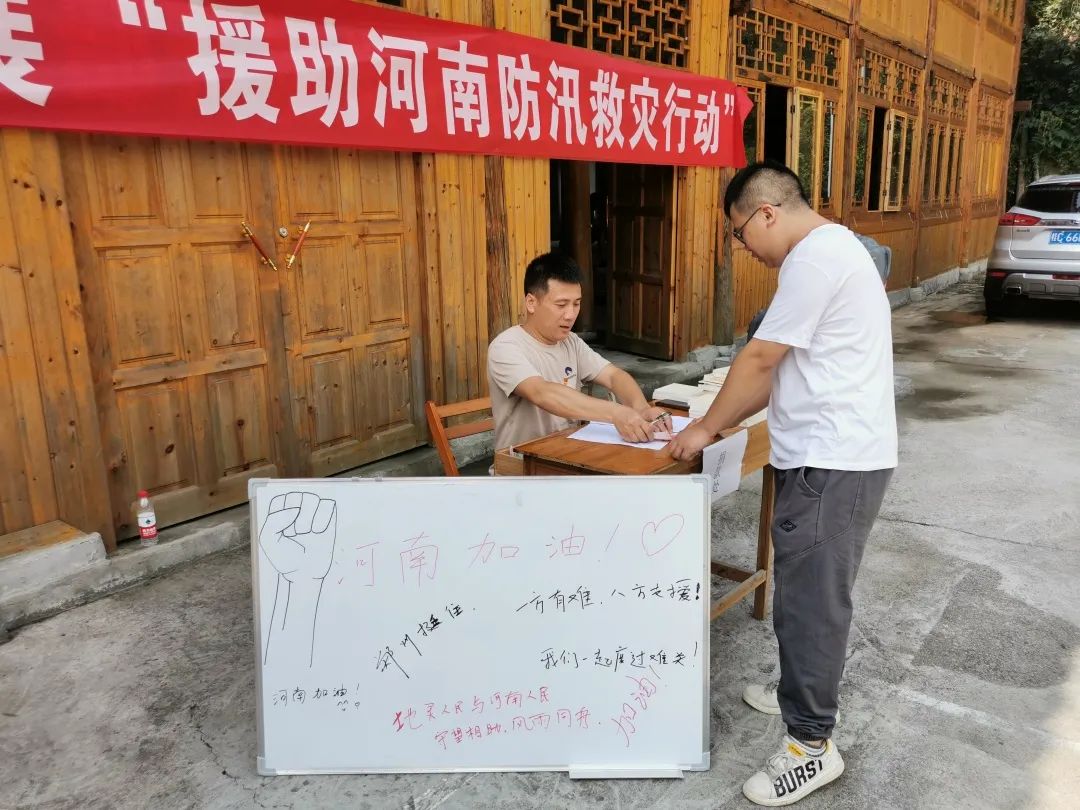 展“援助河南防汛救灾行动”
桂C 66
河南加油！
一方有难，八方支援！
郑州挺住.
我们一起度过难关！
河南加油！
地灵人民与河南人民
守望相助，风雨同舟.
加油！
BURST